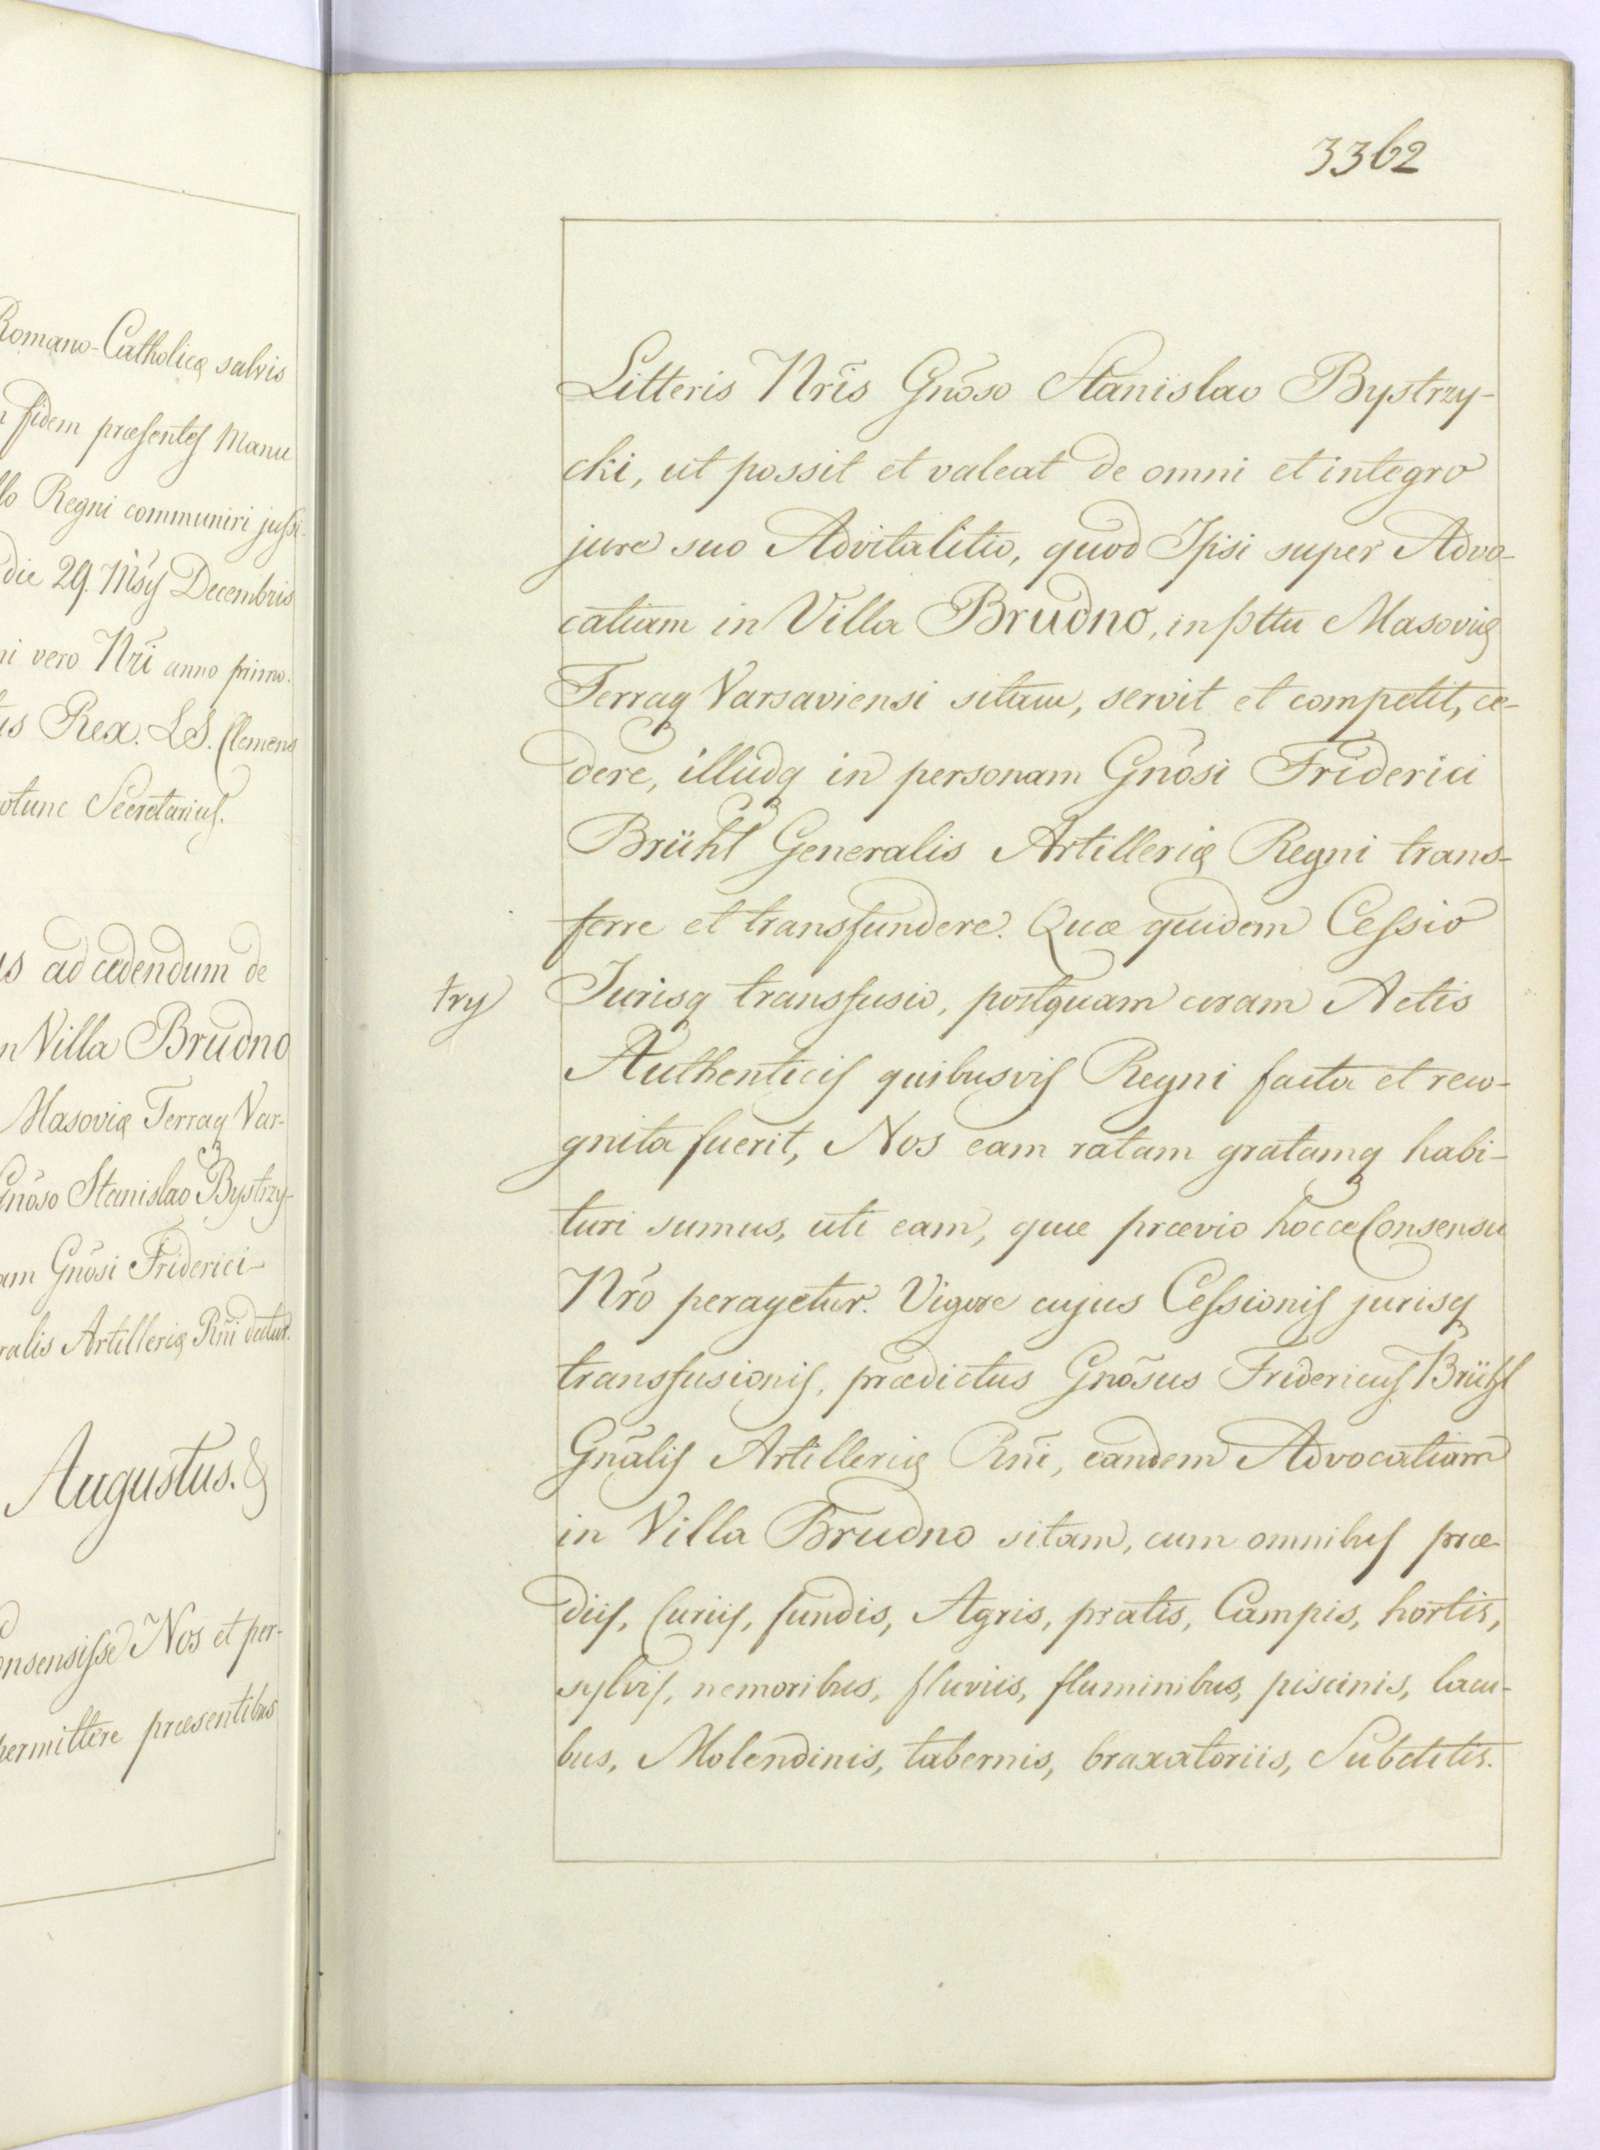 Romano-Catholicæ salvis
fidem præsentes Manu
Regni communiri jussi-
die 29. Ms̃ys Decembris
vero Nr̃i anno primo.
Rex. LS. Clemens
Secretarius.
ad cedendum de
Villa Brudno
Masoviæ Terraq Var-
Gnõso Stanislao Bystrzy-
Gnõsi Friderici
Artilleriæ Rñi datur.
Augustus. &
Nos et per-
præsentibus
3362
Litteris Nr̃is Gnõso Stanislao Bystrzy-
cki, ut possit et valeat de omni et integro
jure suo Advitalitio, quod Ipsi super Advo-
catiam in Villa Brudno, in pttu Masoviæ
Terraq Varsaviensi sitam, servit et competit, ce-
dere, illudq in personam Gnõsi Friderici
Brühl Generalis Artilleriæ Regni trans-
ferre et transfundere. Quæ quidem Cessio
try
Jurisq transfusio, postquam coram Actis
Authenticis quibusvis Regni facta et reco-
gnita fuerit, Nos eam ratam gratamq habi-
turi sumus, uti eam, quæ prævio hocce Consensu
Nr̃o peragetur. Vigore cujus Cessionis jurisq
transfusionis, prædictus Gnõsus Fridericus Brühl
Gnãlis Artilleriæ Rñi, eandem Advocatiam
in Villa Brudno sitam, cum omnibus præ-
diis, Curiis, fundis, Agris, pratis, Campis, hortis,
sylvis, nemoribus, fluviis, fluminibus, piscinis, lacu-
bus, Molendinis, tabernis, braxatoriis, Subditis.